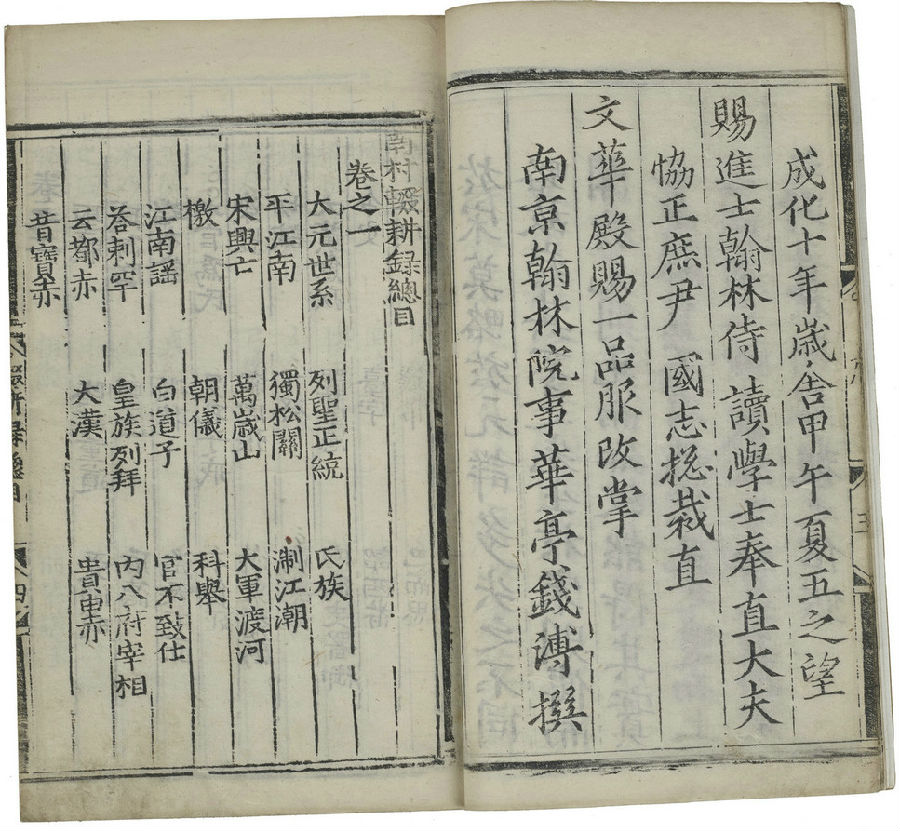 成化十年歲舍甲午夏五之望
賜進士翰林侍讀學士奉直大夫
協正庶尹 國志捴裁直
文華殿賜一品服改掌
南京翰林院事華亭錢溥撰
南村輟耕録總目
卷之一
大元世系 列聖正統 氏族
平江南 獨松關 淛江潮
宋興亡 萬歲山 大軍渡河
檄 朝儀 科舉
江南謡 白道子 官不致仕
荅剌罕 皇族列拜 内八府宰相
云都赤 大漢 貴由赤
昔寶赤